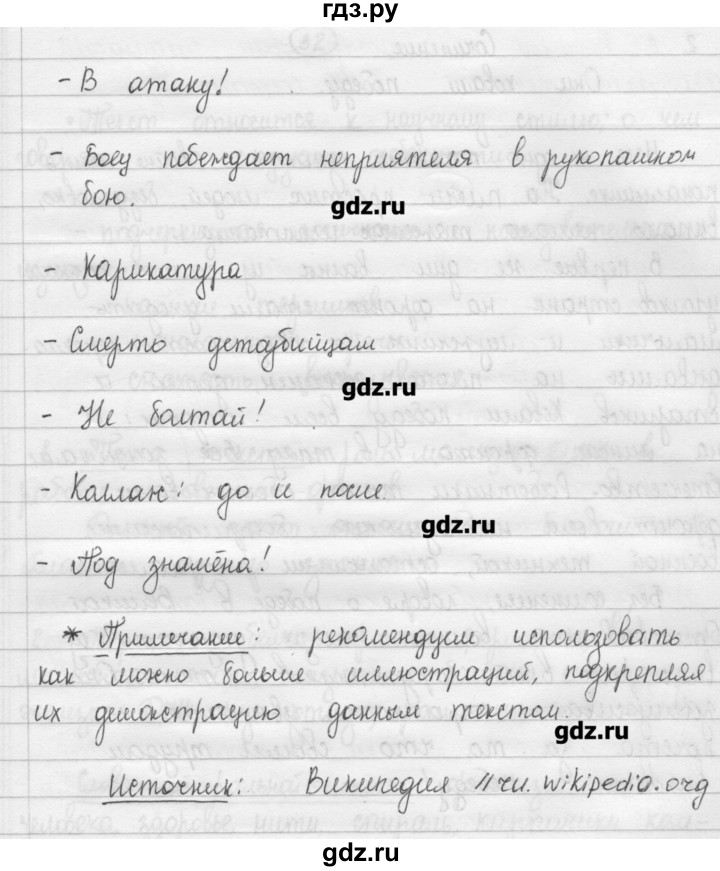 гдз.ру
- В атаку!
- Боец побеждает неприятеля в рукопашном
бою.
gdz.ru
- Карикатура
- Смерть детоубийцам
gdz.ru
- Не болтай!
- Каплан: до и после
gdz.ru
- Под знамёна!
* Примечание: рекомендуем использовать
как можно больше иллюстраций, подкрепляя
их демонстрацию данным текстом.
gdz.ru
Источник: Википедия //ru.wikipedia.org
gdz.ru